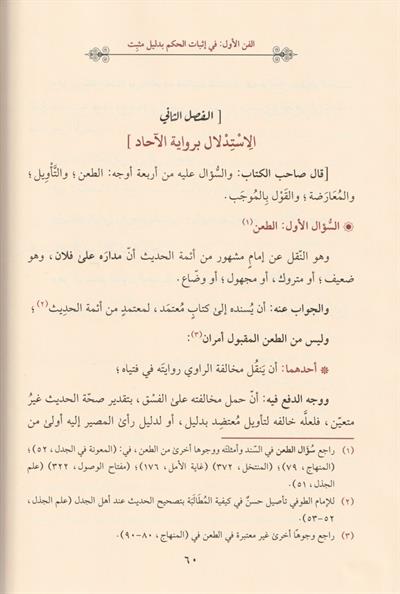 الفن الأول: في إثبات الحكم بدليل مثبِت
[ الفصل الثاني
الِاسْتِدْلال برواية الآحاد ]
[قال صاحب الكتاب: والسُّؤال عليه من أربعة أوجه: الطعن؛ والتَّأْوِيل؛
والمُعَارَضة؛ والقَوْل بِالمُوجَب.
السُّؤال الأول: الطعن(١)
وهو النّقل عن إمامٍ مشهور من أئمة الحديث أنّ مدارَه على فلان، وهو
ضعيف؛ أو متروك، أو مجهول؛ أو وضّاع.
والجواب عنه: أن يُسنده إلى كتابٍ مُعتمَد، لمعتمدٍ من أئمة الحدِيث(٢)؛
وليس من الطعن المقبول أمران(٣):
* أحدهما: أن يَنقُل مخالفة الراوي روايتَه في فتياه؛
ووجه الدفع فيه: أنّ حمل مخالفته على الفسْق، بتقدير صحّة الحديث غيرُ
متعيّن، فلعلَّه خالفه لتأويل مُعتضِد بدليل، أو لدليل رأى المصير إليه أولىٰ من
(١) راجع سُؤال الطعن في السّند وأمثلته ووجوها أخرىٰ من الطعن، في: (المعونة في الجدل، ٥٢)؛
(المنهاج، ٧٩)؛ (المنتخل، ٣٧٢) (غاية الأمل، ١٧٦)؛ (مفتاح الوصول، ٣٢٢) (علم
الجدل، ٥١).
(٢) للإمام الطوفي تأصيل حسنٌ في كيفية المُطَالَبَة بتصحيح الحديث عند أهل الجدل (علم الجدل،
٥٢-٥٣).
(٣) راجع وجوهًا أخرىٰ غير معتبرة في الطعن في (المنهاج، ٨٠-٩٠).
٦٠